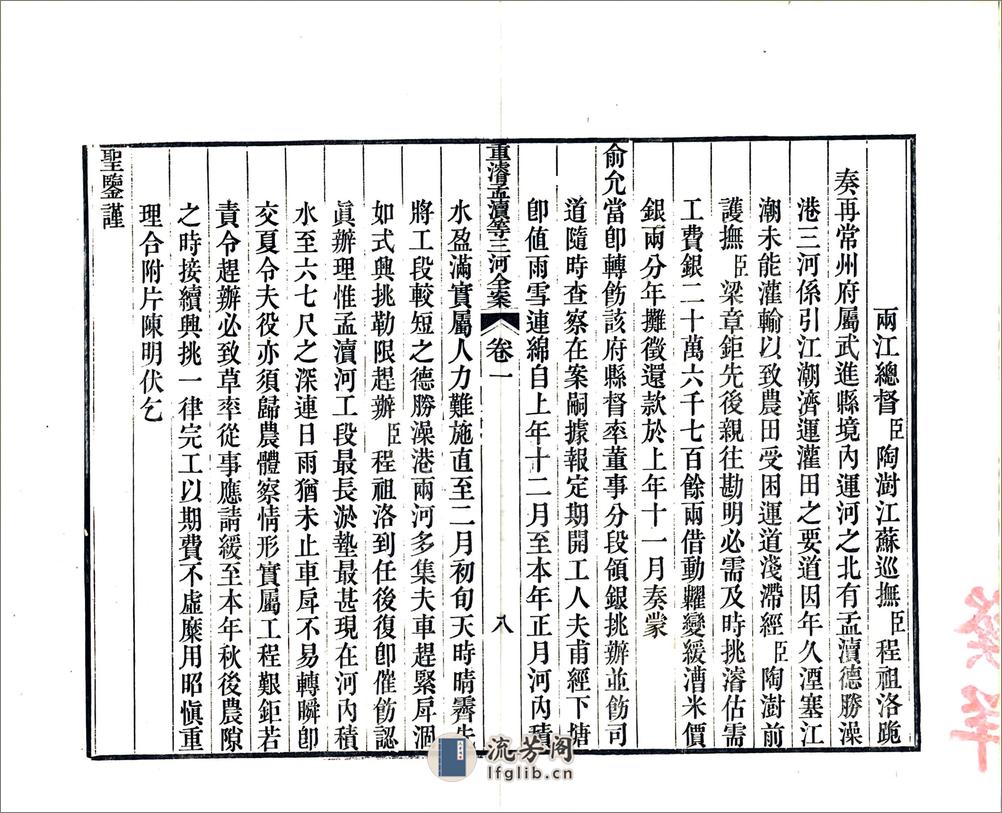 兩江總督臣陶澍江蘇巡撫臣程祖洛跪
奏再常州府屬武進縣境內運河之北有孟瀆德勝澡
港三河係引江潮濟運灌田之要道因年久湮塞江
潮未能灌輸以致農田受困運道淺滯經臣陶澍前
護撫臣梁章鉅先後親往勘明必需及時挑濬估需
工費銀二十萬六千七百餘兩借動糶變緩漕米價
銀兩分年攤徵還款於上年十一月奏蒙
俞允當卽轉飭該府縣督率董事分段領銀挑辦並飭司
道隨時查察在案嗣據報定期開工人夫甫經下塘
卽值雨雪連綿自上年十二月至本年正月河內積
重濬孟瀆等三河全案 卷一 八
水盈滿實屬人力難施直至二月初旬天時晴霽先
將工段較短之德勝澡港兩河多集夫車趕緊戽涸
如式興挑勒限趕辦臣程祖洛到任後復卽催飭認
眞辦理惟孟瀆河工段最長淤墊最甚現在河內積
水至六七尺之深連日雨猶未止車戽不易轉瞬卽
交夏令夫役亦須歸農體察情形實屬工程艱鉅若
責令趕辦必致草率從事應請緩至本年秋後農隙
之時接續興挑一律完工以期費不虛糜用昭愼重
理合附片陳明伏乞
聖鑒謹
流芳阁
lfglib.cn